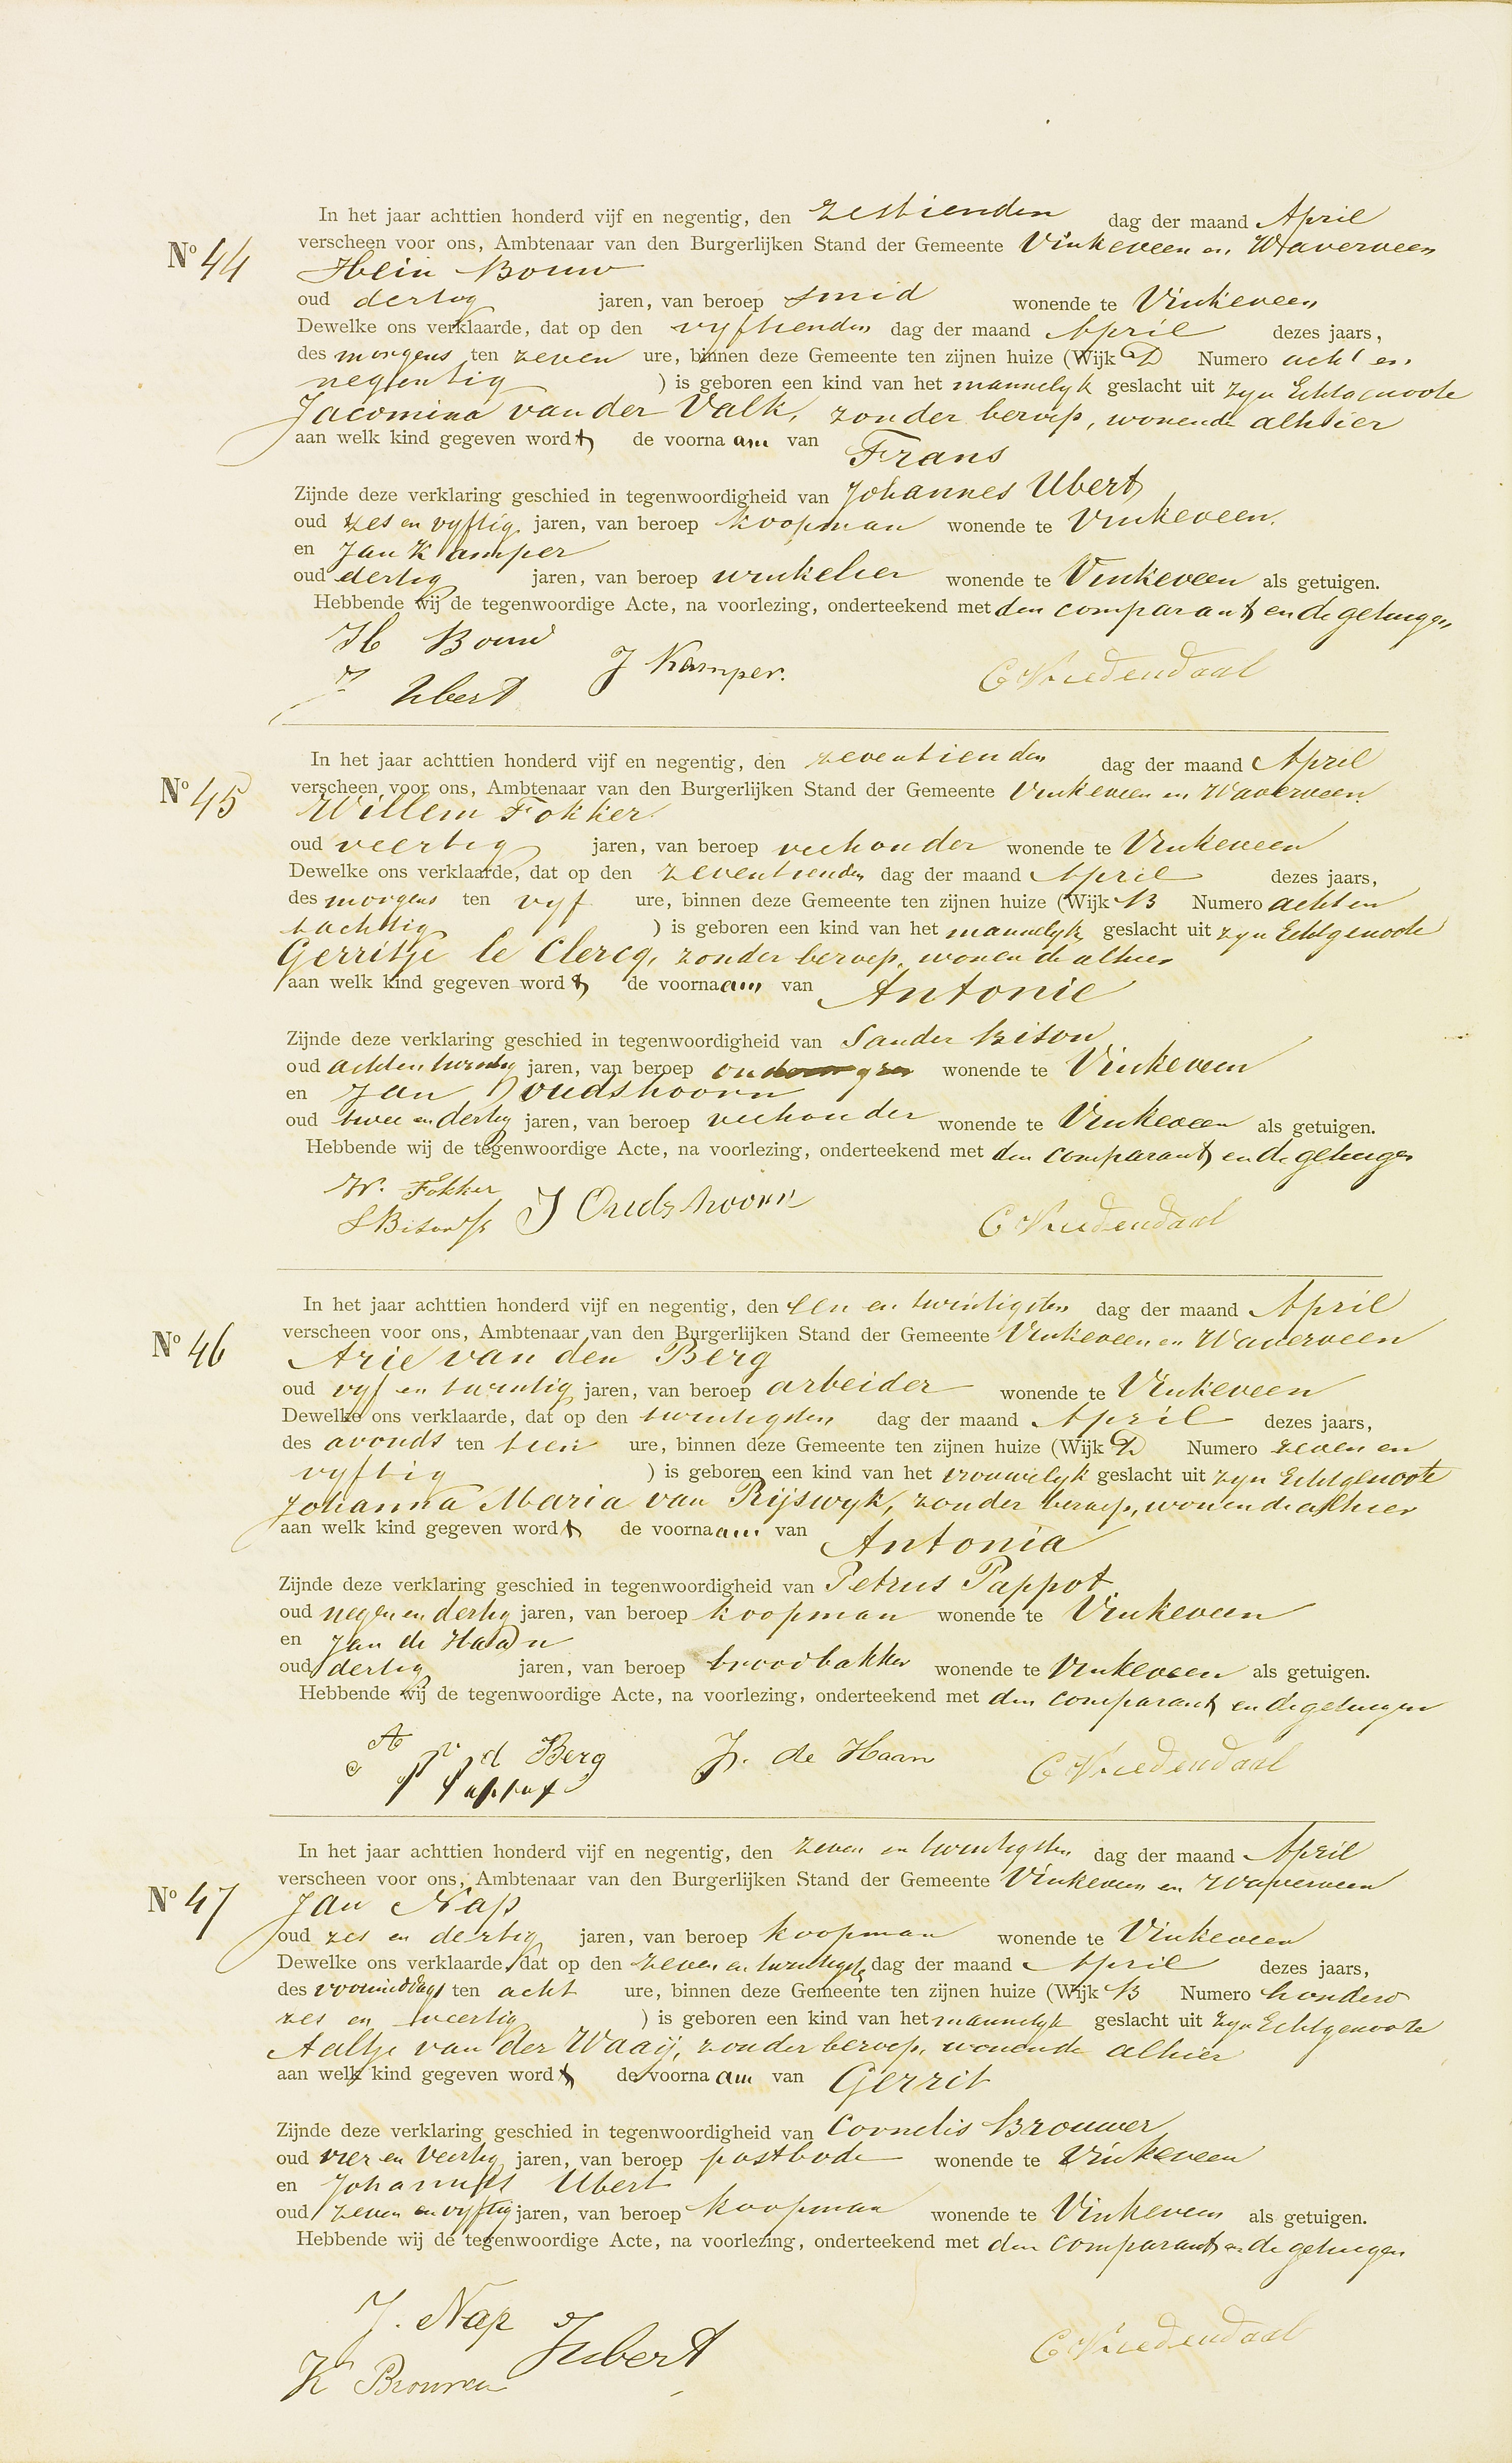 In het jaar achttien honderd vijf en negentig, den zestienden dag der maand April
No 44 verscheen voor ons, Ambtenaar van den Burgerlijken Stand der Gemeente Vinkeveen en Waverveen
Hein Bouw
oud dertig jaren, van beroep smid wonende te Vinkeveen
Dewelke ons verklaarde, dat op den vyftienden dag der maand April dezes jaars,
des morgens ten zeven ure, binnen deze Gemeente ten zijnen huize (Wijk D Numero acht en
negentig ) is geboren een kind van het mannelyk geslacht uit zyn Echtgenoote
Jacomina van der Valk, zonder beroep, wonende alhier
aan welk kind gegeven wordt de voornaam van Frans
Zijnde deze verklaring geschied in tegenwoordigheid van Johannes Ubert
oud zes en vyftig jaren, van beroep koopman wonende te Vinkeveen.
en Jan Kamper
oud dertig jaren, van beroep winkelier wonende te Vinkeveen als getuigen.
Hebbende wij de tegenwoordige Acte, na voorlezing, onderteekend met den comparant en de getuigen
H Bouw
J Kamper.
C Vredendaal
J Ubert
In het jaar achttien honderd vijf en negentig, den zeventienden dag der maand April
No 45 verscheen voor ons, Ambtenaar van den Burgerlijken Stand der Gemeente Vinkeveen en Waverveen
Willem Fokker
oud veertig jaren, van beroep veehouder wonende te Vinkeveen
Dewelke ons verklaarde, dat op den zeventienden dag der maand April dezes jaars,
des morgens ten vyf ure, binnen deze Gemeente ten zijnen huize (Wijk B Numero acht en
tachtig ) is geboren een kind van het mannelyk geslacht uit zyn Echtgenoote
Gerritje le Clercq, zonder beroep, wonende alhier
aan welk kind gegeven wordt de voornaam van Antonie
Zijnde deze verklaring geschied in tegenwoordigheid van Sander Bison
oud acht en twintig jaren, van beroep wonende te Vinkeveen
en Jan Oudshoorn
oud twee en dertig jaren, van beroep veehouder wonende te Vinkeveen als getuigen.
Hebbende wij de tegenwoordige Acte, na voorlezing, onderteekend met den comparant en de getuigen
W. Fokker
J Oudshoorn
C Vredendaal
In het jaar achttien honderd vijf en negentig, den een en twintigsten dag der maand April
No 46 verscheen voor ons, Ambtenaar van den Burgerlijken Stand der Gemeente Vinkeveen en Waverveen
Arie van den Berg
oud vyf en twintig jaren, van beroep arbeider wonende te Vinkeveen
Dewelke ons verklaarde, dat op den twintigsten dag der maand April dezes jaars,
des avonds ten tien ure, binnen deze Gemeente ten zijnen huize (Wijk D Numero zeven en
vyftig ) is geboren een kind van het vrouwelyk geslacht uit zyn Echtgenoote
Johanna Maria van Rijswyk, zonder beroep, wonende alhier
aan welk kind gegeven wordt de voornaam van Antonia
Zijnde deze verklaring geschied in tegenwoordigheid van Petrus Pappot
oud negen en dertig jaren, van beroep koopman wonende te Vinkeveen
en Jan de Haan
oud dertig jaren, van beroep broodbakker wonende te Vinkeveen als getuigen.
Hebbende wij de tegenwoordige Acte, na voorlezing, onderteekend met den comparant en de getuigen
A v d Berg
J. de Haan
C Vredendaal
P Pappot
In het jaar achttien honderd vijf en negentig, den zeven en twintigsten dag der maand April
No 47 verscheen voor ons, Ambtenaar van den Burgerlijken Stand der Gemeente Vinkeveen en Waverveen
Jan Nap
oud zes en dertig jaren, van beroep koopman wonende te Vinkeveen
Dewelke ons verklaarde, dat op den zeven en twintigste dag der maand April dezes jaars,
des voormiddags ten acht ure, binnen deze Gemeente ten zijnen huize (Wijk B Numero honderd
zes en veertig ) is geboren een kind van het mannelyk geslacht uit zyn Echtgenoote
Aaltje van der Waaij, zonder beroep, wonende alhier
aan welk kind gegeven wordt de voornaam van Gerrit
Zijnde deze verklaring geschied in tegenwoordigheid van Cornelis Brouwer
oud vier en veertig jaren, van beroep postbode wonende te Vinkeveen
en Johannes Ubert
oud zeven en vyftig jaren, van beroep koopman wonende te Vinkeveen als getuigen.
Hebbende wij de tegenwoordige Acte, na voorlezing, onderteekend met den comparant en de getuigen
J. Nap
J Ubert
C Vredendaal
K Brouwer